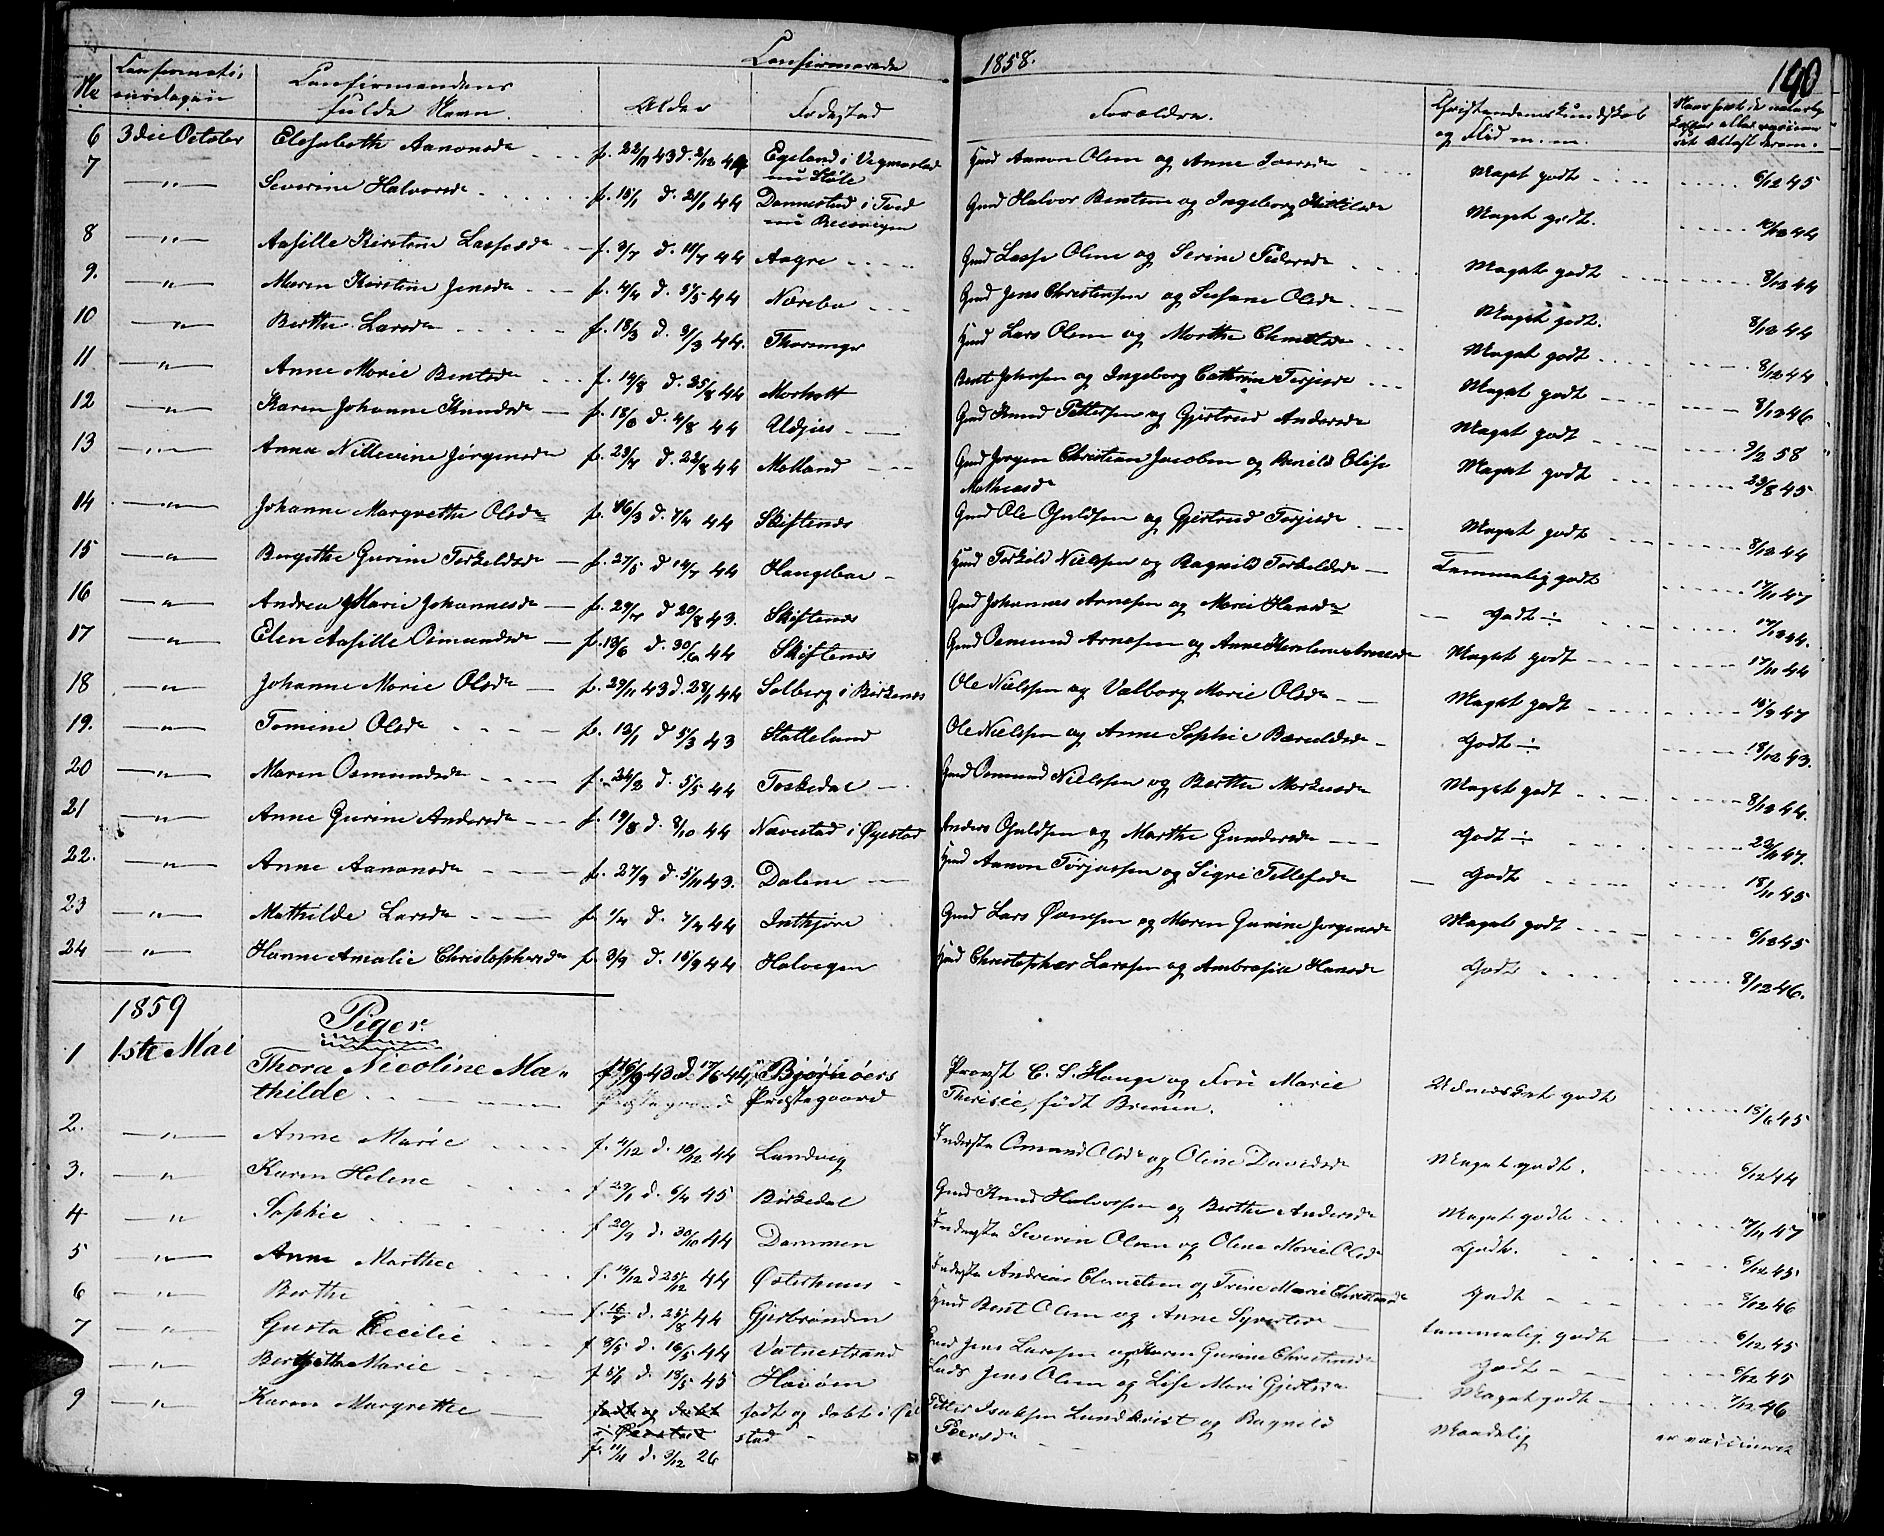 Confirmerede 1858. 140
No Confirmati- onsdagen Confirmandens fulde Navn. Alder Fødested Forældre. Christendomskundskab og Flid m.m.
6 3die October Elisabeth Aanonsd. f. 22/11 43 d. Egeland i Vegmostad nu Støle Gmd Aanon Olsen og Anne Meget godt 6/12 45
7 — " — Severine Halvorsd. f. 15/1 d. 21/1 44 Dannestad i Tved nu Gmd Halvor Bentsen og Ingeborg Meget godt. 10/12 44
8 — " — Aasille Kirstine Lassesd. f. 3/7 d. 11/7 44 Aagre Gmd Lasse Olsen og Serine Pedersd. Meget godt 8/12 44
9. — " — Maren Kirstine Jensd. f. 4/4 d. 5/5 44 Nærebo Gmd Jens Christensen og Susane Olsd. Meget godt. 8/12 44
10 — " — Berthe Larsd. f. 18/3 d. 31/3 44. Thorenge Gmd Lars Olsen og Marthe Meget godt 8/12 44
11 — " — Anne Marie Bentsd. f. 14/8 d. 25/8 44 Morholt Bent Johnsen og Ingeborg Cathrine Terjesd. Meget godt 8/12 46
12 — " — Karen Johanne Knudsd. f. 18/6 d. 4/8 44 Gmd Knud Pettersen og Gjertrud Andersd. Meget godt 9/2 58
13 — " — Anna Nillevine Jørgensd. f. 23/7 d. 22/8 44 Molland Gmd Jørgen Christian Jacobsen og Elise Mathiasd. Meget godt 23/8 45
14 — " — Johanne Margrethe Olsd. f. 16/3 d. 7/4 44 Skiftenes Gmd Ole Gjuldsen og Gjertrud Terjesd. Meget godt 8/12 44
15 — " — Bergithe Gurine Terkelsd. f. 27/5 d. 14/7 44 Haugeboe Gmd Terkild Nielsen og Ragnild Terkeldsd. Temmelig godt 17/11 47
16 — " — Andrea Marie Johannesd. f. 29/7 d. 20/8 43. Skiftenes Gmd Johannes Arnesen og Marie Hansd. Godt ÷ 17/12 44.
17 — " — Elen Aasille Osmundsd. f. 13/6 d. 30/6 44 Skiftenes Gmd Osmund Arnesen og Anne Meget godt 17/11 44
18 — " — Johanne Marie Olsd. f. 29/11 43 d. 28/1 44 Solberg i Birkenes Ole Nielsen og Valborg Marie Olsd. Meget godt 16/9 47
19. — " — Tomine Olsd. f. 12/1 d. 5/3 43 Stalleland Ole Nielsen og Anne Sophie Godt ÷ 18/12 43.
20 — " — Maren Osmundsd. f. 24/2 d. 5/5 44 Toskedal Gmd Osmund Nielsen og Berthe Markusd. Meget godt 8/12 44.
21 — " — Anne Gurine Andersd. f. 19/8 d. 8/10 44 Nævestad i Øyestad Anders Gjuldsen og Marthe Gundersd. Godt ÷ 22/11 47.
22. — " — Anne Aanonsd. f. 27/9 d. 5/11 43. Dalene Gmd Aanon Torjussen og Sigri Tellefsd. Godt 18/11 45
23 — " — Mathilde Larsd. f. 1/4 d. 7/4 44 Inthjøre Gmd Lars og Maren Gurine Jørgensd. Meget godt 6/12 45
24 — " — Hanne Amalie Christophersd. f. 3/9 d. 15/9 44 Halvegen Gmd Christopher Larsen og Ambrosia Hansd. Godt 8/12 46.
1859 Piger.
1 1ste Mai Thora Nicoline Ma- thilde f. 16/9 43 d. 17/6 44, Bjørnøers Præstegaard Provst C. S. Hauge og Fru Marie Therisie, født Bremen. Udmerket godt 15/6 45
2. — " — Anne Marie f. 4/12 d. 10/12 44 Landvig Inderste Osmund Olsen og Oline Davidsd. Meget godt. 6/12 44
3. — " — Karen Helene f. 29/1 d. 6/4 45 Birkedal Gmd Knud Halvorsen og Berthe Andersd. Meget godt 17/11 47
4 — " — Sophie f. 20/9 d. 30/10 44 Dammen Inderste Severin Olsen og Olena Marie Olsd. Godt. 6/12 45
5 — " — Anne Marthee f. 14/12 d. 25/12 44 Østerhuus Inderste Andreas Clemetsen og Trine Marie Godt 8/12 46
6 — " — Berthe d. 25/8 44 Gjerbrønden Gmd Bent Olsen og Anne Temmelig godt 6/12 45
7 — " — Gusta Cecilie f. 9/5 d. 16/5 44 Vatnestrand Gmd Jens Larsen og Karen Gurine Godt 6/12 45
— " — Bergithe Marie f. 5/1 d. 18/5 45 Havøen Jens Olsen og Lise Mari Gjertsd. Meget godt 7/12 46
9 — " — Karen Margrethe født og døbt i Øiestad f. 11/11 d. 3/12 26 født og døbt i Øiestad Petter Isaksen Lundkvist og Ragnild Peersd. Maadelig er vaccineret